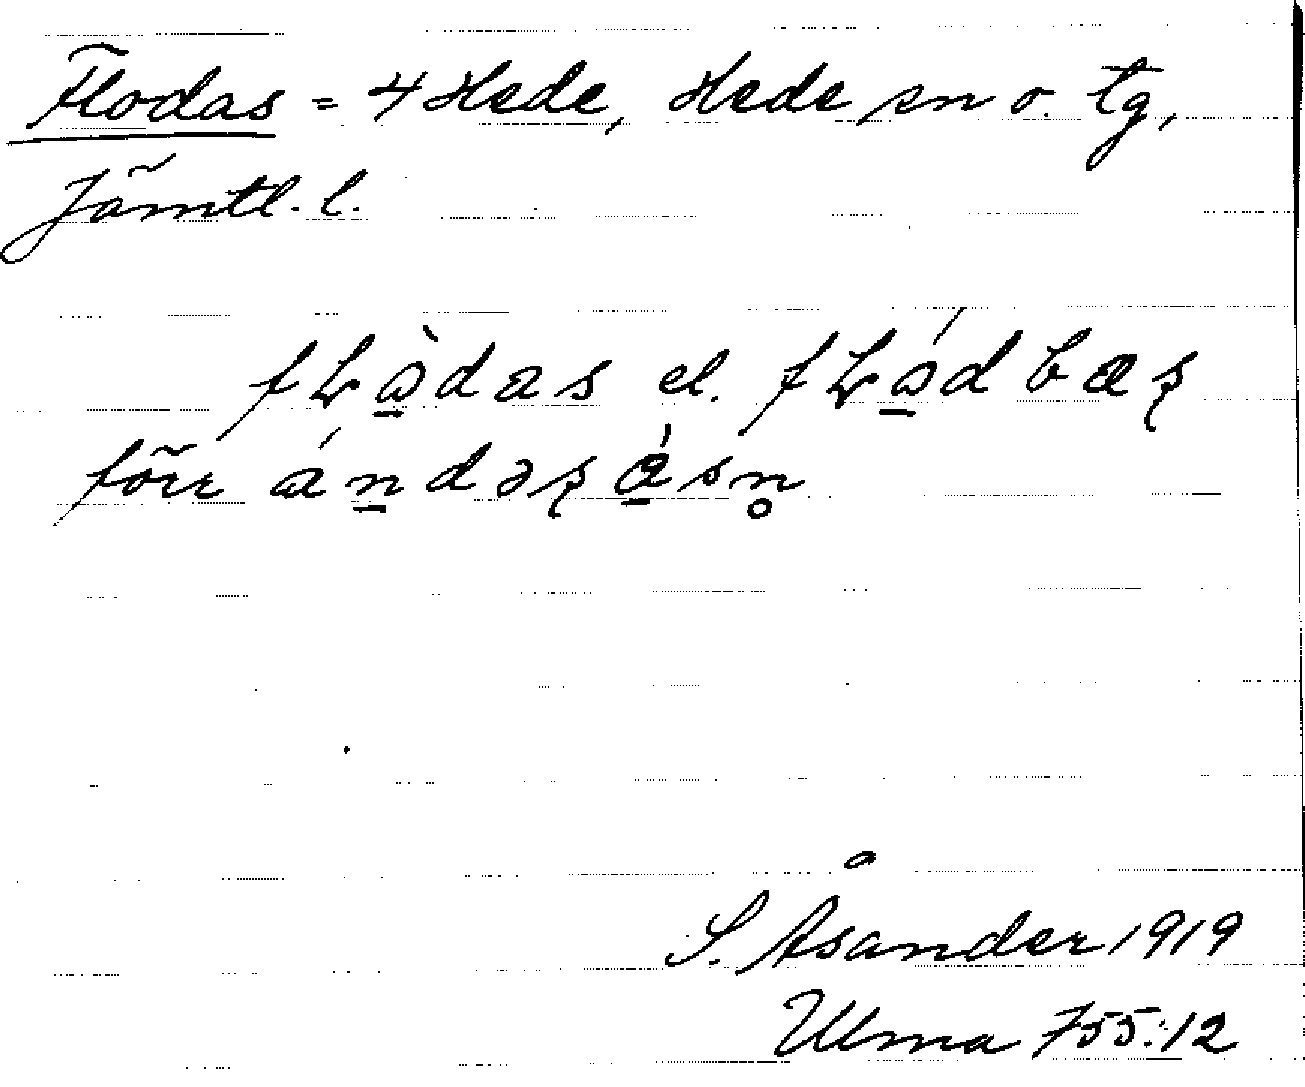 Flodas = 4 Hede, Hede sn o. tg,
Jämtl. l.
fⱢà̱das el. fⱢá̱dbaʂ
förr án̲dəʂá̲sn̥
S. Åsander 1919
Ulma 755:12